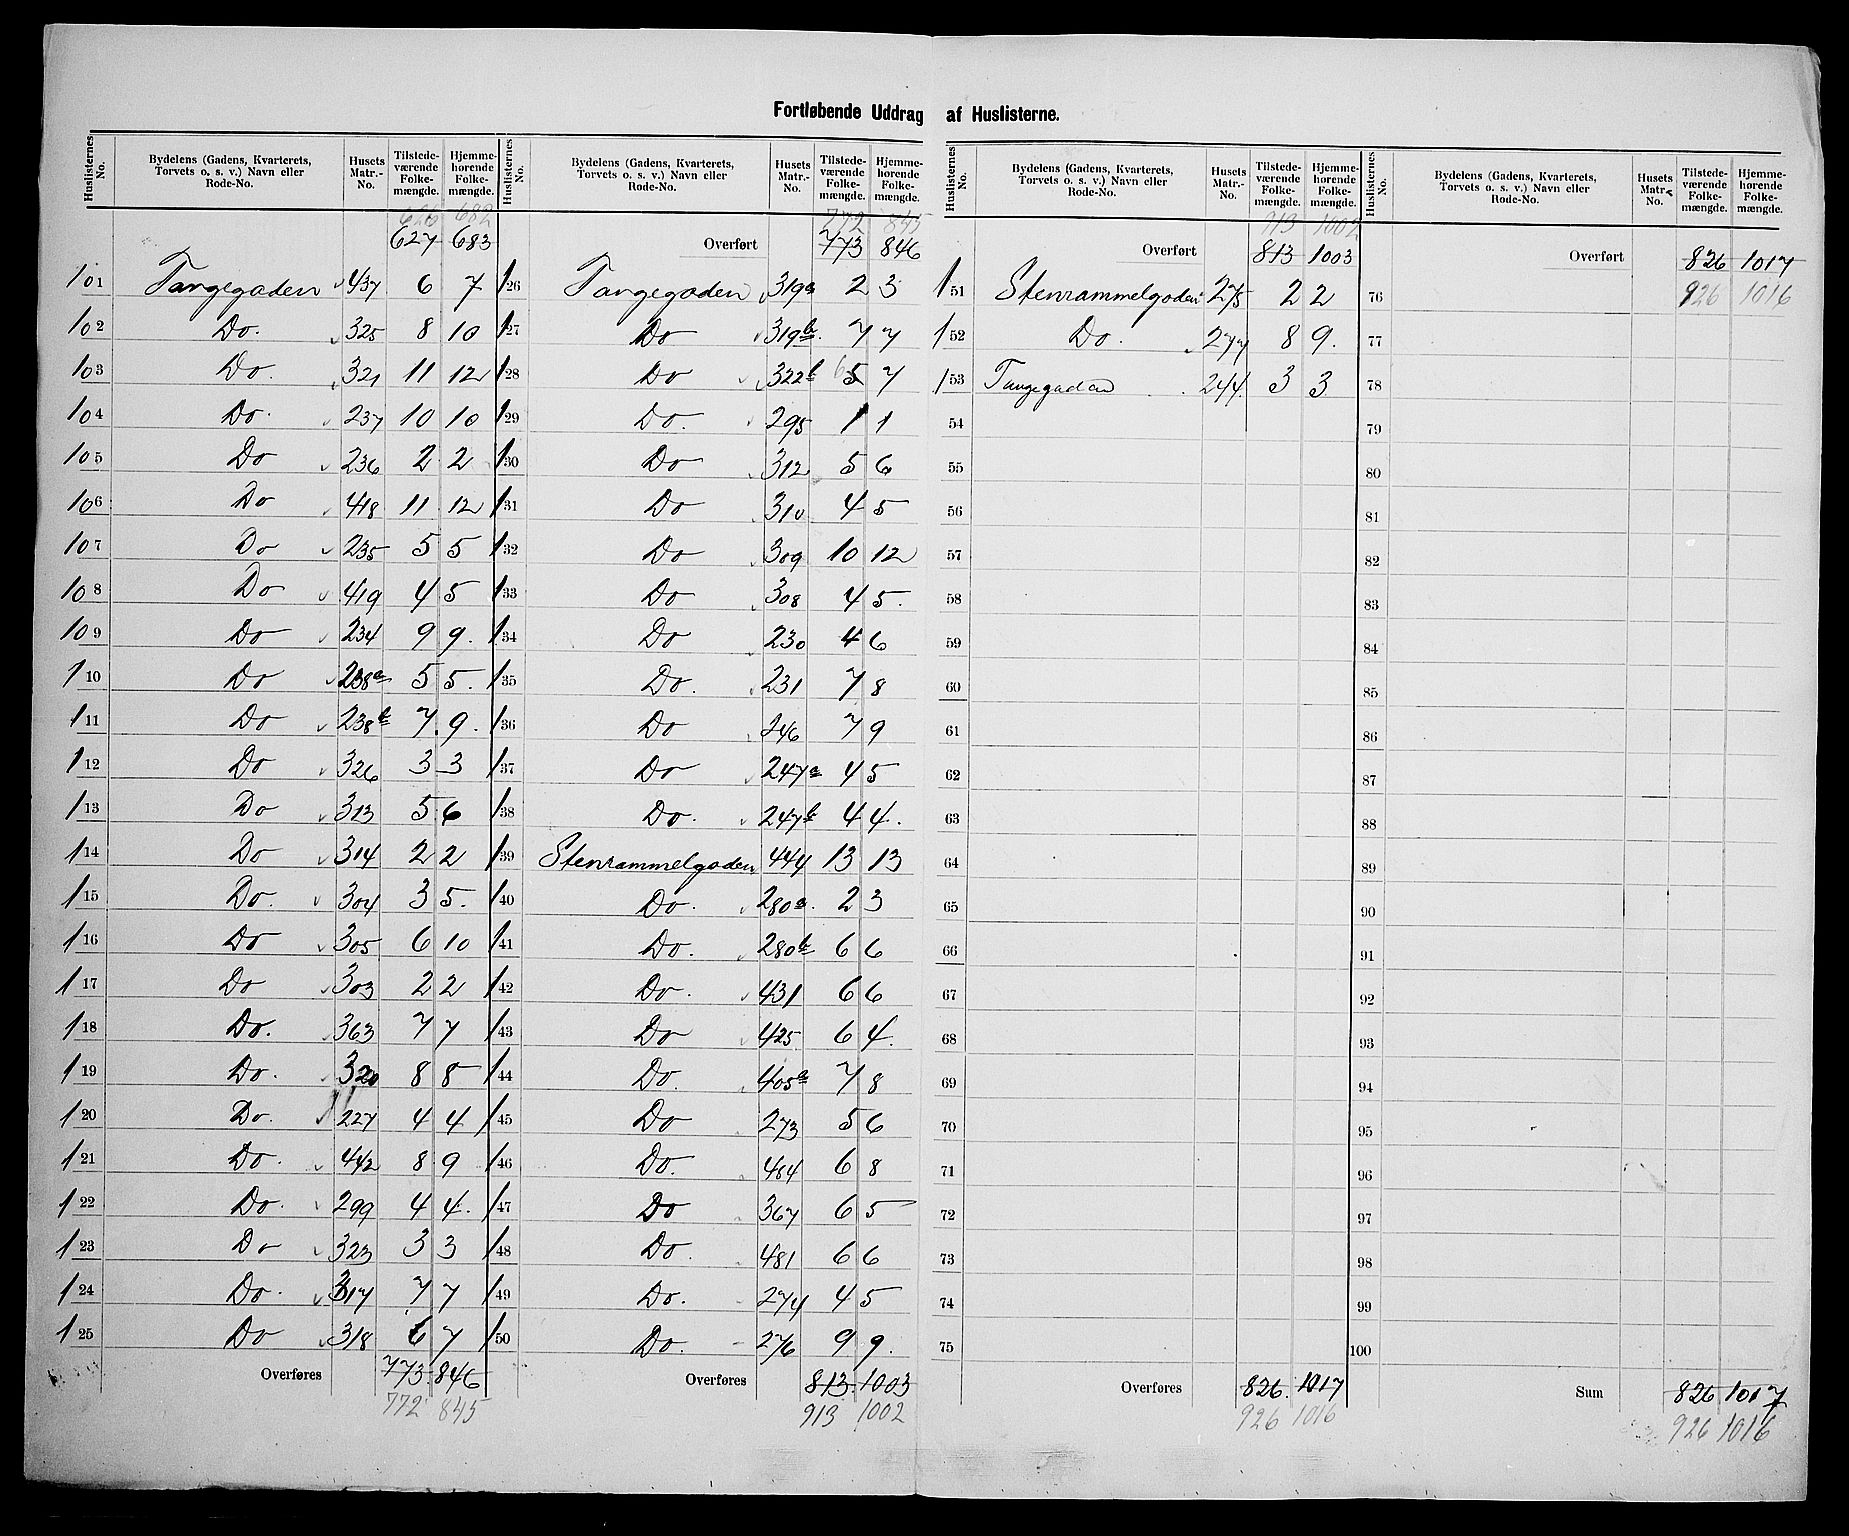 Fortløbende Uddrag af Huslisterne.
Huslisternes No. | Bydelens (Gadens, Kvarterets, Torvets o. s. v.) Navn eller Rode-No. | Husets Matr.-No. | Tilstedeværende Folkemængde. | Hjemmehørende Folkemængde.
626 682
627 683
101 Tangegaden 437 6 7
102 Do. 325 8 10
103 Do. 321 11 12
104 Do. 237 10 10
105 Do 236 2 2
106 Do 418 11 12
107 Do 235 5 5
108 Do 419 4 5
109 Do 234 9 9.
110 Do 238a 5 5.
111 Do 238b 7. 9.
112 Do 326 3 3
113 Do 313 5 6
114 Do 314 2 2
115 Do. 304 3 5.
116 Do 305 6 10
117 Do 303 2 2
118 Do. 363 7 7
119 Do. 320 8 8
120 Do. 227 4 4
121 Do. 442 8 9
122 Do. 299 4 4.
123 Do 323 3 3
124 Do. 317 7 7
125 Do 318 6 7
Overføres 773. 846
772 845
Huslisternes No. | Bydelens (Gadens, Kvarterets, Torvets o. s. v.) Navn eller Rode-No. | Husets Matr.-No. | Tilstedeværende Folkemængde. | Hjemmehørende Folkemængde.
772 845
Overført 773 846
126 Tangegaden 319a 2 3
127 Do 319b. 7 7
128 Do 322b 5 7
129 Do. 295 1 1
130 Do 312 5 6
131 Do 310 4 5
132 Do 309 10 12
133 Do 308 4 5.
134 Do 230 4 6
135 Do. 231 7 8
136 Do 246 7 9
137 Do 247a 4 5
138 Do. 247b 4 4.
139 Stenrammelgaden 444 13 13
140 Do. 280a. 2 3
141 Do. 280b 6 6
142 Do. 431 6 6
143 Do 425. 6 4.
144 Do. 405a 7 8
145 Do 273 5 6
146 Do. 484 6 8
147 Do 367 6 5
148 Do. 481 6 6
149 Do. 274 4 5
150 Do. 276 9 9.
Overføres 813. 1003
913 1002
Huslisternes No. | Bydelens (Gadens, Kvarterets, Torvets o. s. v.) Navn eller Rode-No. | Husets Matr.-No. | Tilstedeværende Folkemængde. | Hjemmehørende Folkemængde.
913 1002
Overført 813 1003
151 Stenrammelgaden 275 2 2
152 Do. 277 8 9.
153 Tangegaden 244. 3 3
54
55
56
57
58
59
60
61
62
63
64
65
66
67
68
69
70
71
72
73
74
75
Overføres 826. 1017
926 1016
Huslisternes No. | Bydelens (Gadens, Kvarterets, Torvets o. s. v.) Navn eller Rode-No. | Husets Matr. No. | Tilstedeværende Folkemængde. | Hjemmehørende Folkemængde.
Overført 826 1017
76 926 1016
77
78
79
80
81
82
83
84
85
86
87
88
89
90
91
92
93
94
95
96
97
98
99
100
Sum 826 1017
926 1016